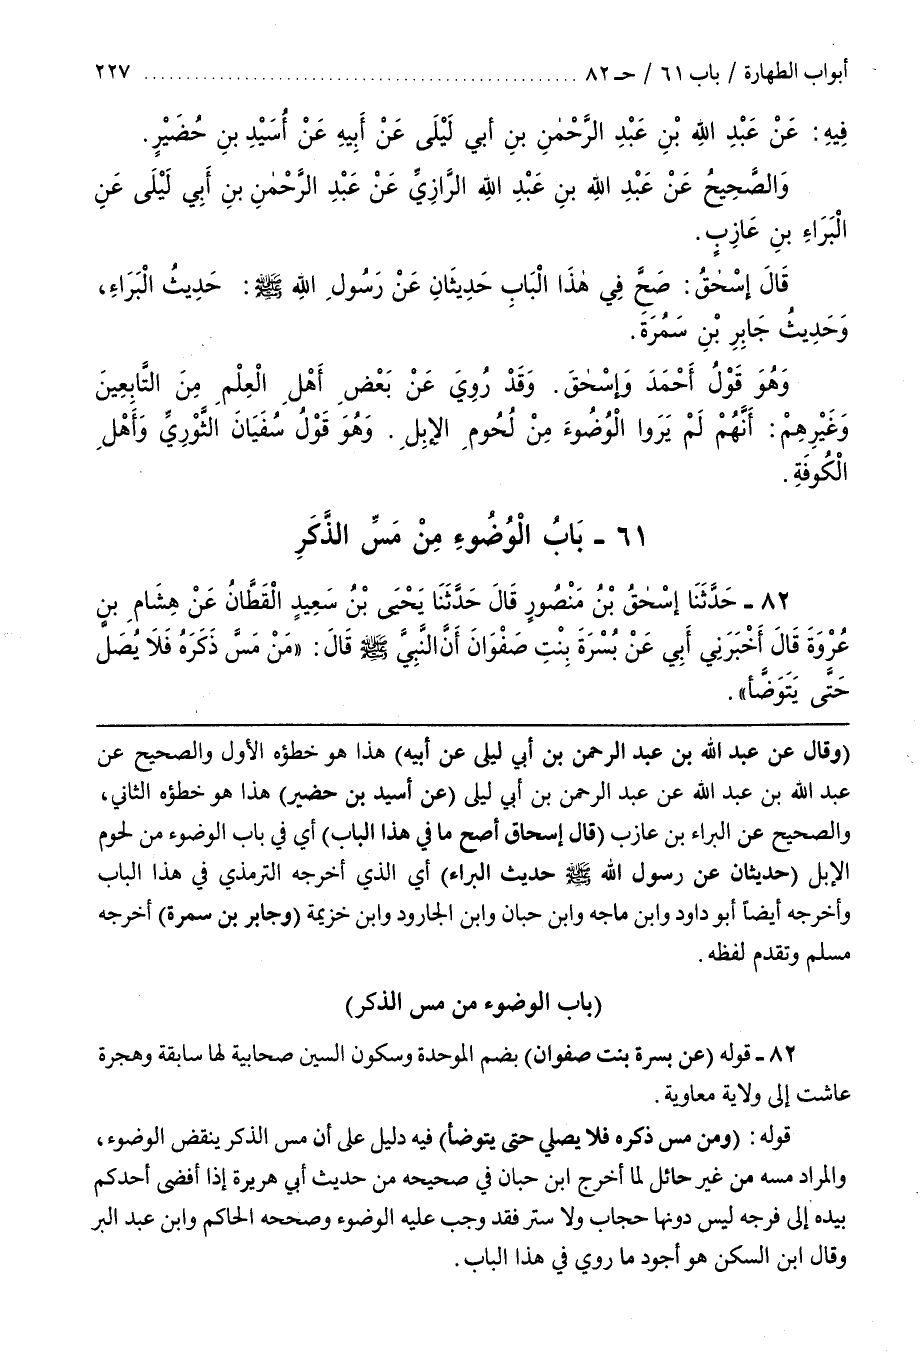 أبواب الطهارة / باب ٦١ / حـ ٨٢ ............................................................ ٢٢٧
فِيهِ: عَنْ عَبْدِ اللهِ بْنِ عَبْدِ الرَّحْمٰنِ بنِ أبي لَيْلَى عَنْ أَبِيهِ عَنْ أُسَيْدِ بنِ حُضَيْرٍ.
وَالصَّحِيحُ عَنْ عَبْدِ اللهِ بنِ عَبْدِ اللهِ الرَّازِيِّ عَنْ عَبْدِ الرَّحْمٰنِ بنِ أَبِي لَيْلَى عَنِ
الْبَرَاءِ بنِ عَازِبٍ.
قَالَ إسْحٰقُ: صَحَّ فِي هٰذَا الْبَابِ حَدِيثَانِ عَنْ رَسُولِ اللهِ ﷺ: حَدِيثُ الْبَرَاءِ،
وَحَدِيثُ جَابِرِ بْنِ سَمُرَةَ.
وَهُوَ قَوْلُ أَحْمَدَ وَإسْحٰقَ. وَقَدْ رُوِيَ عَنْ بَعْضِ أَهْلِ الْعِلْمِ مِنَ التَّابِعِينَ
وَغَيْرِهِمْ: أَنَّهُمْ لَمْ يَرَوا الْوُضُوءَ مِنْ لُحُومِ الإبِلِ. وَهُوَ قَوْلُ سُفْيَانَ الثَّوْرِيِّ وَأَهْلِ
الْكُوفَةِ.
٦١ ـ بَابُ الْوُضُوءِ مِنْ مَسِّ الذَّكَرِ
٨٢ ـ حَدَّثَنَا إسْحٰقُ بْنُ مَنْصُورٍ قَالَ حَدَّثَنَا يَحْيَى بْنُ سَعِيدٍ الْقَطَّانُ عَنْ هِشَامِ بنِ
عُرْوَةَ قَالَ أَخْبَرَنِي أَبِي عَنْ بُسْرَةَ بِنْتِ صَفْوَانَ أَنَّ النَّبِيَّ ﷺ قَالَ: «مَنْ مَسَّ ذَكَرَهُ فَلَا يُصَلِّ
حَتَّى يَتَوَضَّأ».
(وقال عن عبد الله بن عبد الرحمن بن أبي ليلى عن أبيه) هذا هو خطؤه الأول والصحيح عن
عبد الله بن عبد الله عن عبد الرحمن بن أبي ليلى (عن أسيد بن حضير) هذا هو خطؤه الثاني،
والصحيح عن البراء بن عازب (قال إسحاق أصح ما في هذا الباب) أي في باب الوضوء من لحوم
الإبل (حديثان عن رسول الله ﷺ حديث البراء) أي الذي أخرجه الترمذي في هذا الباب
وأخرجه أيضاً أبو داود وابن ماجه وابن حبان وابن الجارود وابن خزيمة (وجابر بن سمرة) أخرجه
مسلم وتقدم لفظه.
(باب الوضوء من مس الذكر)
٨٢ ـ قوله (عن بسرة بنت صفوان) بضم الموحدة وسكون السين صحابية لها سابقة وهجرة
عاشت إلى ولاية معاوية.
قوله: (ومن مس ذكره فلا يصلي حتى يتوضأ) فيه دليل على أن مس الذكر ينقض الوضوء،
والمراد مسه من غير حائل لما أخرج ابن حبان في صحيحه من حديث أبي هريرة إذا أفضى أحدكم
بيده إلى فرجه ليس دونها حجاب ولا ستر فقد وجب عليه الوضوء وصححه الحاكم وابن عبد البر
وقال ابن السكن هو أجود ما روي في هذا الباب.